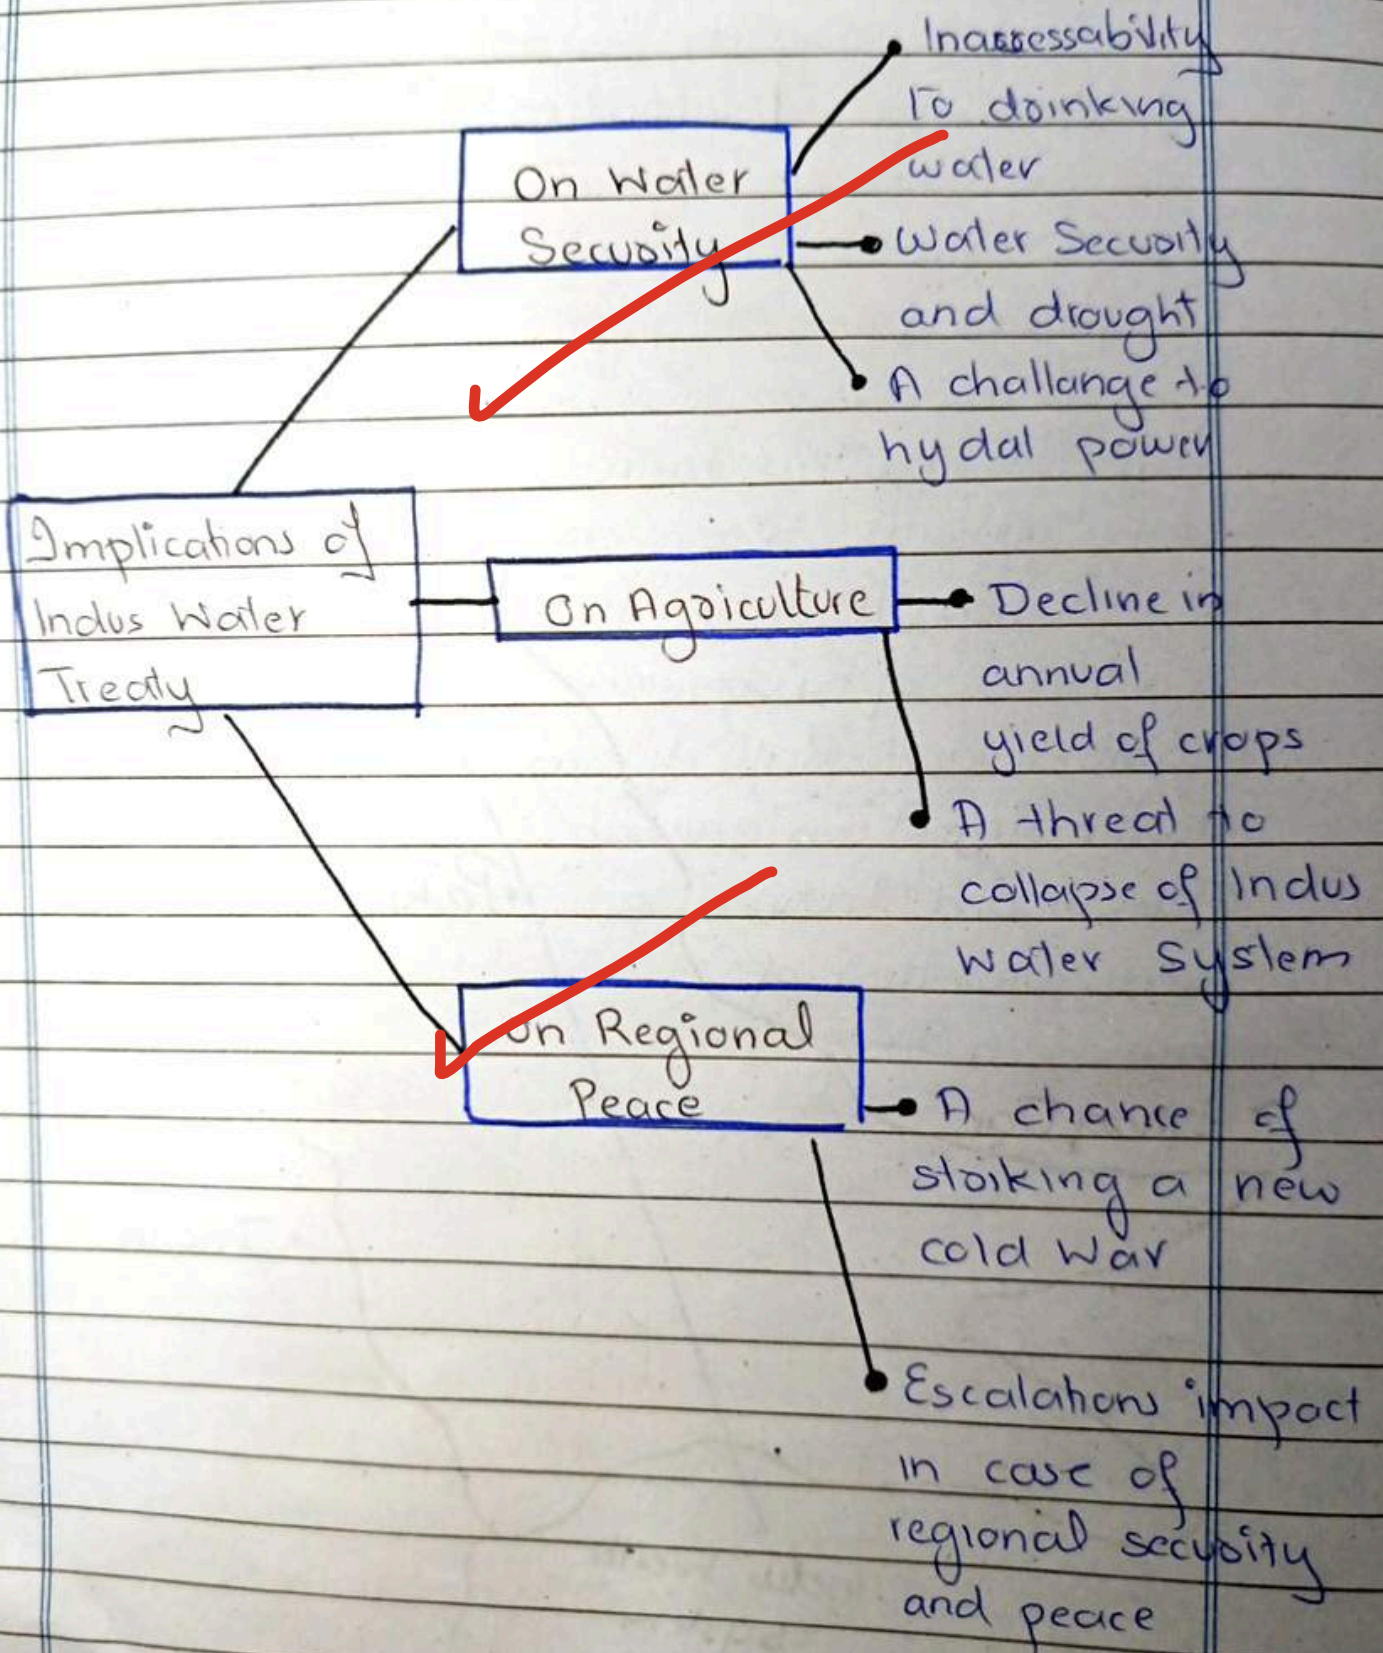 Implications of
Indus Water
Treaty
On Water
Security
Inassessability
To drinking
water
Water Security
and drought
A challange to
hydal power
On Agriculture
Decline in
annual
yield of crops
A threat to
collapse of Indus
Water System
On Regional
Peace
A chance of
striking a new
cold War
Escalations impact
in case of
regional security
and peace